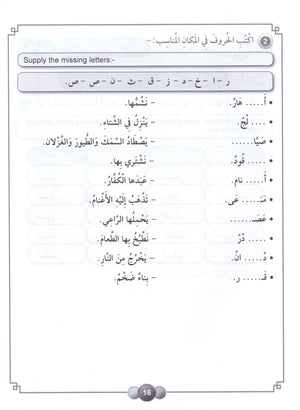 2 اكْتُبِ الْحُروفَ في الْمكانِ الْمُناسِبِ: -
Supply the missing letters:-
ر - ا - خ - د - ز - ق - ث - ن - ص - ص.
• أَ.... هارٌ. - نَشُمُّها.
• .... لْجٌ. - يَنْزِلُ في الشِّتاءِ.
• صَيّا...... - يَصْطادُ السَّمَكَ وَالطُّيورَ وَالغُزْلان.
• ..... قودٌ. - نَشْتَري بِها.
• أَ..... نام. - عَبَدَها الْكُفّارُ.
• مَـ..... عَى. - تَذْهَبُ إِلَيْهِ الأَغْنامُ.
• عَصَـ...... - يَحْمِلُها الرَّاعي.
• ..... دْرٌ - نَطْبُخُ بِها الطَّعامَ.
• دُ..... انٌ. - يَخْرُجُ مِنَ النّارِ.
• قَـ .... ر. - بِناءٌ ضَخْمٌ.
16